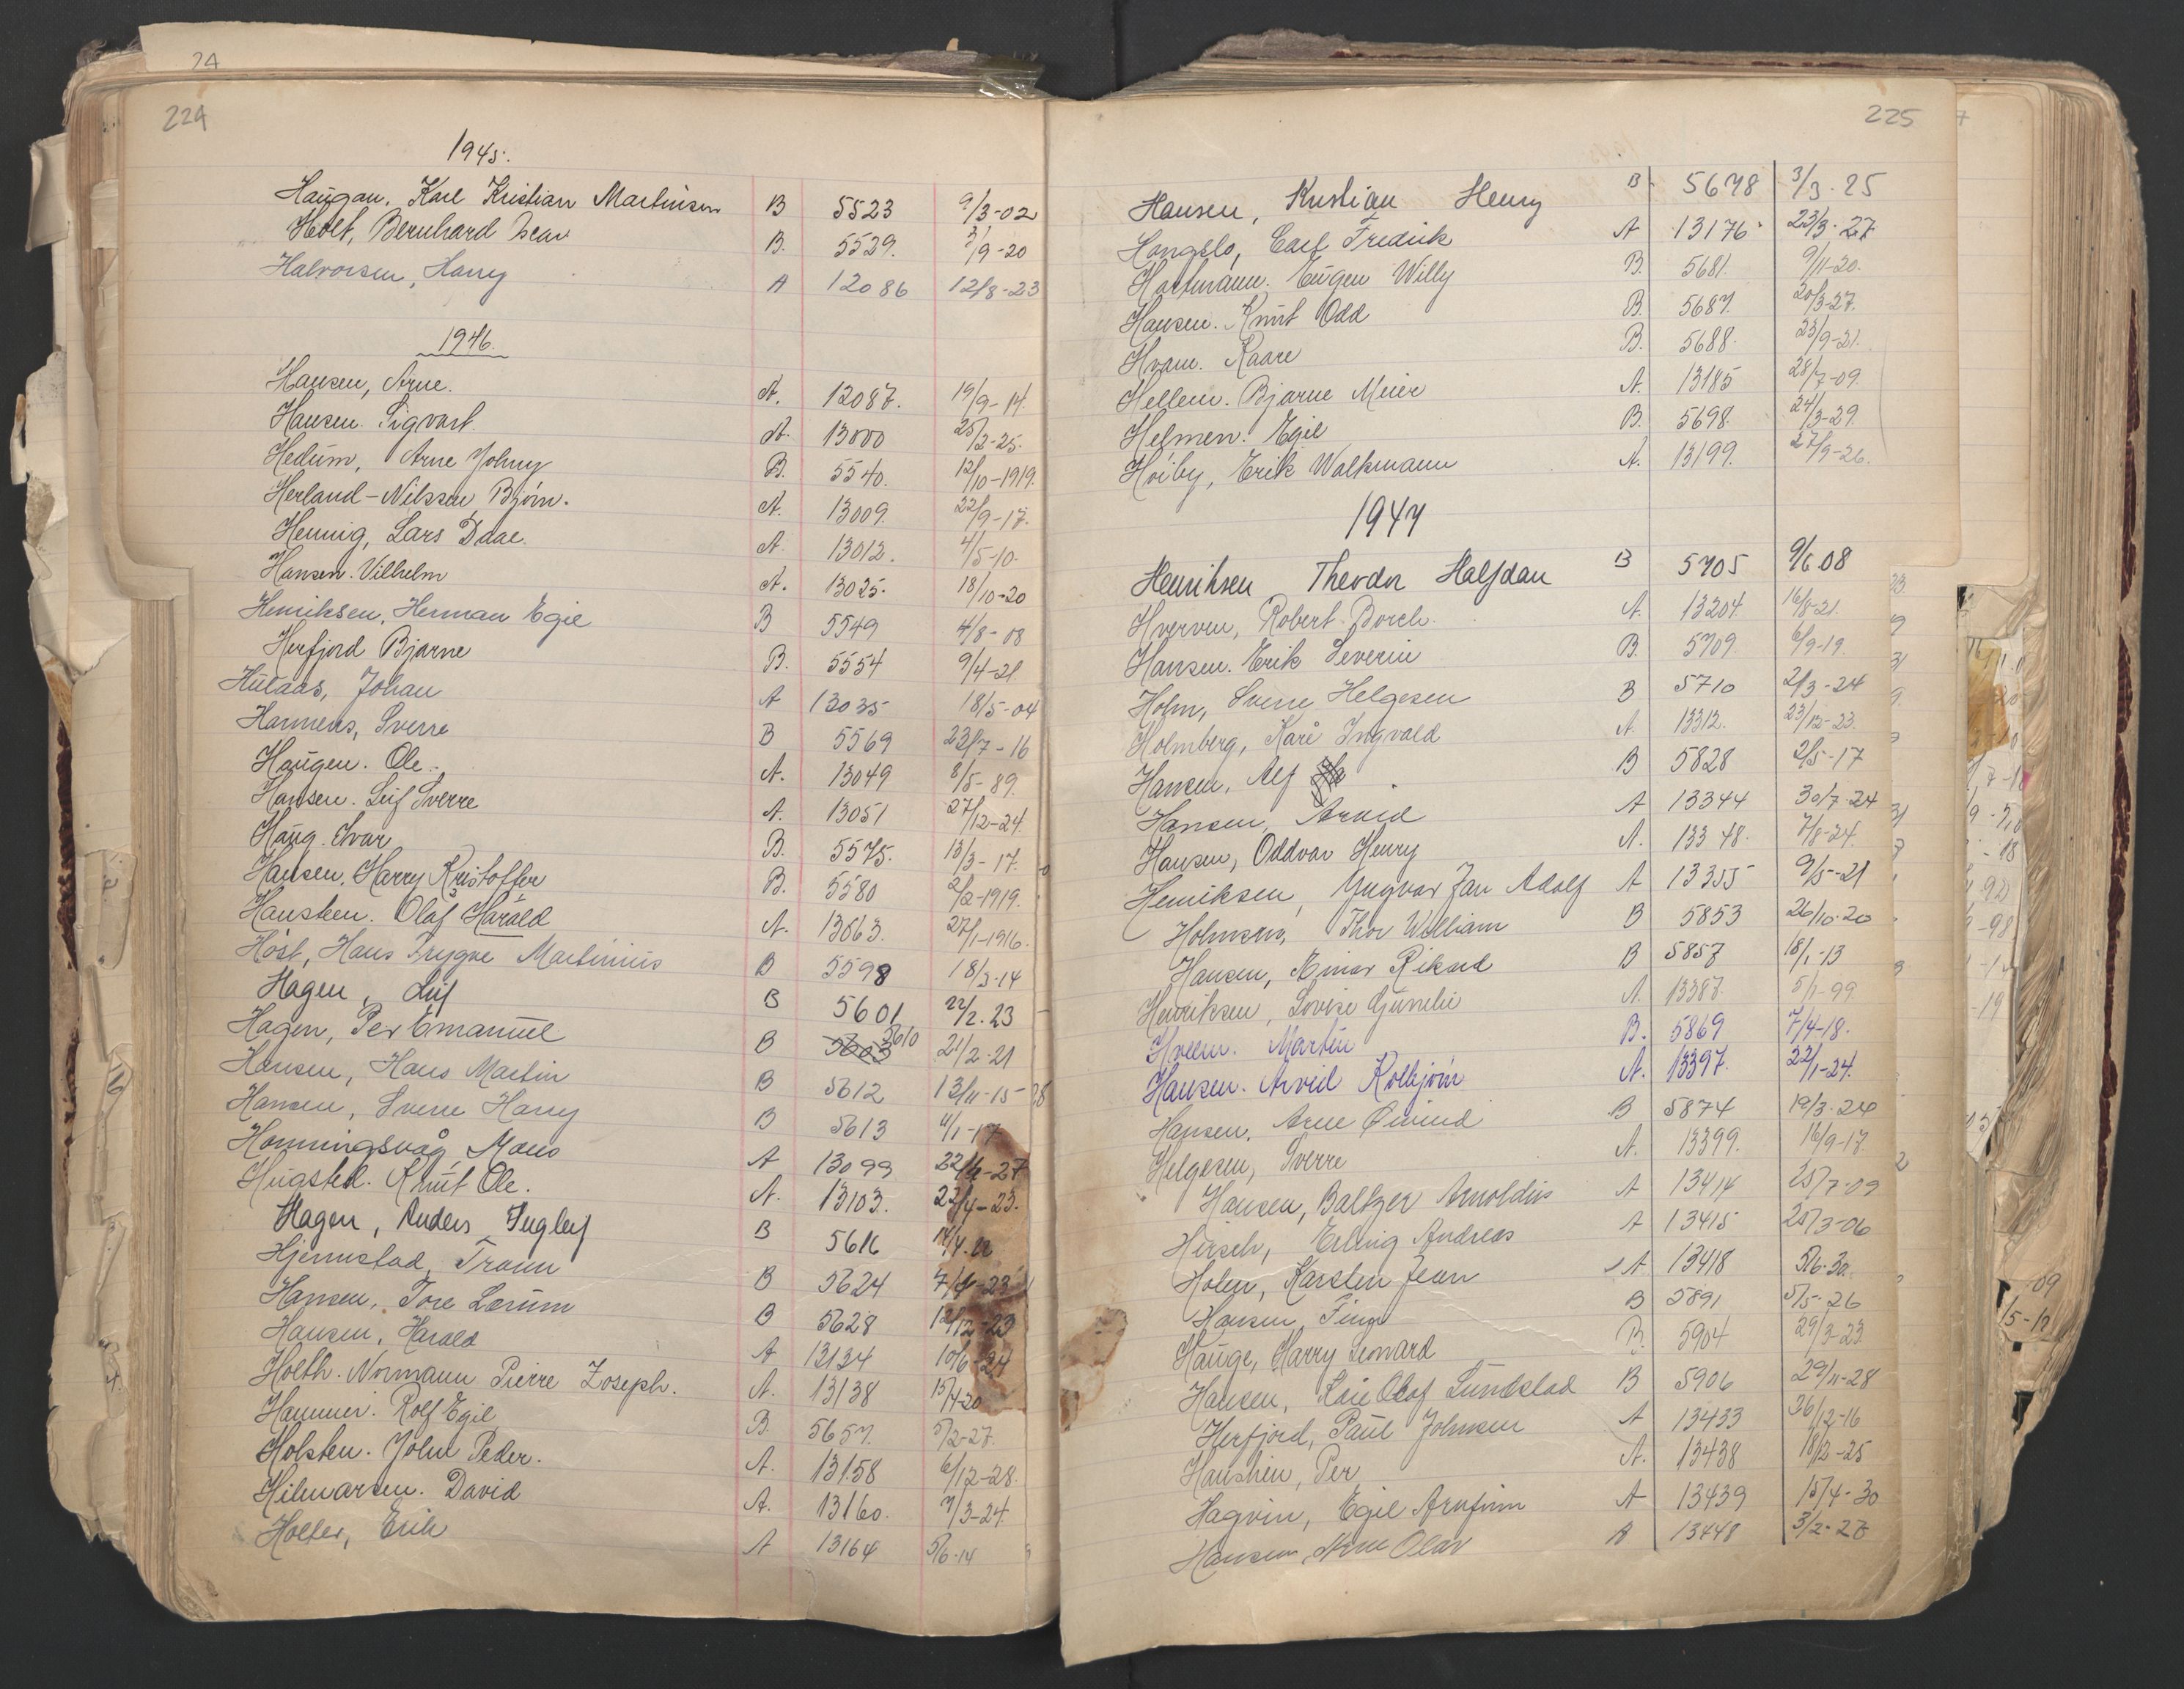 24
224
1945.
Haugan, Karl Kristian Martinsen B 5523 9/3-02
Holt, Bernhard B. 5529. 3/9-20
Halvorsen, Harry A 12086 12/8-23
1946.
Hansen, Arne. A. 12087. 19/9-14.
Hansen. Sigvart. A. 13000 25/2-25.
Hedum, Arne Johny B. 5540. 12/10-1919.
Herland-Nilssen, Bjørn. A. 13009. 22/9-17.
Hennig, Lars Daae. A 13012. 4/5-10.
Hansen. Vilhelm A. 13025. 18/10-20
Henriksen, Herman Egil B 5549 4/8-08
Herfjord Bjarne B. 5554 9/4-21
Hulaas, Johan A 13035 18/5-04
Hannevas, Sverre B 5569 23/7-16
Haugen. Ole. A. 13049 8/5-89.
Hansen. Leif Sverre A. 13051 27/12-24.
Haug. Ivar B. 5575. 13/3-17.
Hansen, Harry Kristoffer B. 5580 2/2-1919.
Hansteen. Olaf Harald A. 13063. 27/1-1916.
Høst, Hans Trygve Martinius B 5598 18/3-14
Hagen, Leif B 5601 22/2.23
Hagen, Per Emanuel B 5603 5610 21/2-21
Hansen, Hans Martin B 5612 13/11-15
Hansen, Sverre Harry B 5613 4/1-17
Honningsvåg Mons A 13099 22/6-27
Hugsted. Knut Ole. A. 13103. 23/4-23.
Hagen, Anders Ingleif B 5616 14/4.22
Hjemstad, Trond B 5624 7/4-23
Hansen, Tore Lorum B 5628 12/12-23
Hansen, Harald A 13134 10/6-24
Holth. Normann Pierre Joseph. A. 13138 15/4-20
Hammer. Rolf Egil B. 5657. 5/2-27.
Holsten. John Peder. A. 13158 6/12-28.
Hilmarsen. David A. 13160. 7/3-24.
Holter, Erik A 13164 5/6-14
225
Hansen, Kristian Henry B 5678 3/3.25
Hongslo, Carl Fredrik A 13176 23/3-27
Hartmann. Eugen Willy B. 5681. 9/11-20.
Hansen. Knut Odd B. 5687. 20/3-27.
Hvam. Kaare B. 5688. 23/9-21.
Hellem. Bjarne Meier A. 13185 28/7-09.
Helmen. Egil B. 5698. 24/3-29.
Høiby, Erik Walkmann A. 13199. 27/9-26.
1947
Henriksen Theodor Halfdan B 5705 9/6.08
Hverven, Robert Dorch. A. 13204 16/8-21.
Hansen. Erik Severin B. 5709. 6/9-19.
Holm, Sverre Helgesen B 5710 2/3-24
Holmberg, Kåre Ingvald A. 13312. 23/12-23.
Hansen, Alf B 5828 2/5-17
Hansen, Arvid A 13344 30/7-24
Hansen, Oddvar Henry A. 13348. 7/8-24.
Henriksen, Yngvar Jan Adolf A 13355 9/5-21
Holmsen, Thor William B 5853 26/10-20
Hansen, Einar Rikard B 5857 18/1-13
Henriksen, Lovise Gunelie A. 13387. 5/1-99.
Hveem. Martin B. 5869 7/4-18.
Hansen. Arvid Kolbjørn A. 13397. 22/1-24.
Hansen. Arne Øivind B 5874 19/3-24
Helgesen, Sverre A. 13399. 16/9-17.
Hansen, Baltzer Arnoldus A 13414 25/7-09
Hirsch, Erling Andreas A 13415 25/3-06
Holen, Karsten Jean A. 13418 5/6-30.
Hansen, Finn B 5891 5/5-26
Hauge, Harry Leonard B. 5904 29/3-23.
Hansen, Kåre Olaf Sundstad B 5906 29/11-28
Herfjord, Paul Johnsen A 13433 26/12-16
Hanshien, Per A. 13438 18/2-25
Hagvin, Egil Arnfinn A 13439 15/4-30
Hansen, Arne Olav A 13448 3/2-27